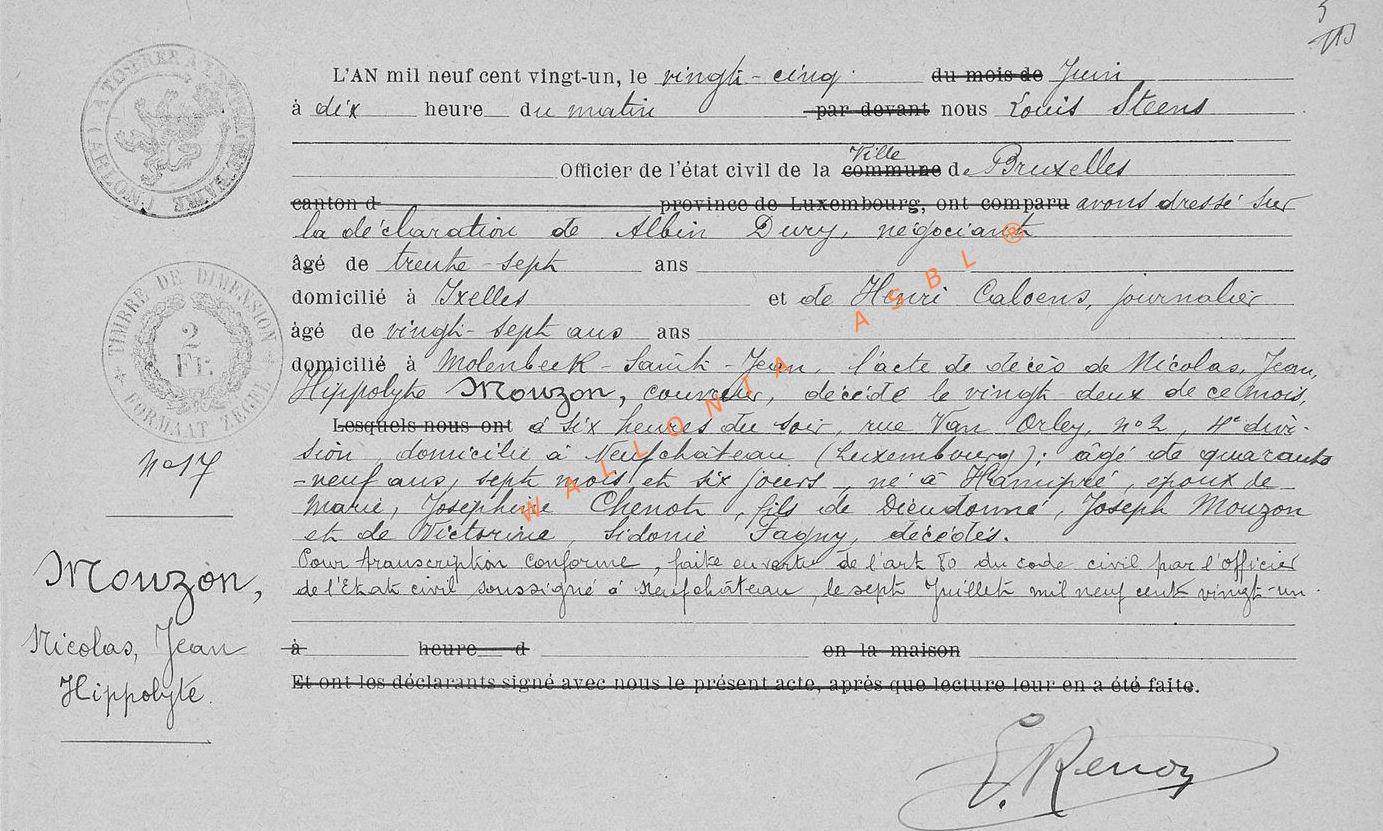 L'AN mil neuf cent vingt-un, le vingt-cinq du mois de Juin
à dix heure du matin par devant nous Louis Steens
Officier de l'état civil de la commune Ville de Bruxelles
canton d province de Luxembourg, ont comparu avons dressé sur
la déclaration de Albin Dury, négociant
âgé de trente-sept ans
domicilié à Ixelles et de Henri Caloens, journalier
âgé de vingt-sept ans ans
domicilié à Molenbeek-Saint-Jean, l'acte de décès de Nicolas, Jean,
Hippolyte Mouzon, couvreur, décédé le vingt-deux de ce mois,
Lesquels nous ont à six heures du soir, rue Van Orley, n°2, 4e divi-
sion, domicilié à Neufchâteau (Luxembourg); âgé de quarante
-neuf ans, sept mois et six jours, né à Hamipré, époux de
Marie, Joséphine Chenot, fils de Dieudonné, Joseph Mouzon
et de Victorine, Sidonie Fagny, décédés.
Pour transcription conforme, faite en vertu de l'art 80 du code civil par l'officier
de l'Etat civil soussigné à Neufchâteau, le sept Juillet mil neuf cent vingt-un.
à heure d en la maison
Et ont les déclarants signé avec nous le présent acte, après que lecture leur en a été faite.
TIMBRE DE DIMENSION
2
FR.
FORMAAT ZEGEL
N°17
Mouzon,
Nicolas, Jean
Hippolyte.
WALLONIA ASBL ®